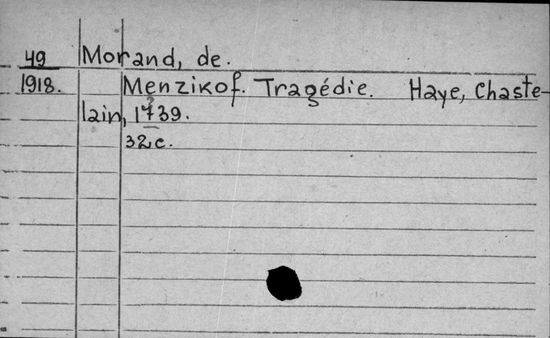 49 Morand, de.
1918. Menzikof. Tragédie. Haye, Chaste-
lain, 1739.
32 c.